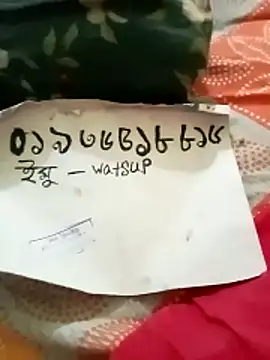 ০১৯৩৫৪১৮৮১৫
ইমু – watsuP